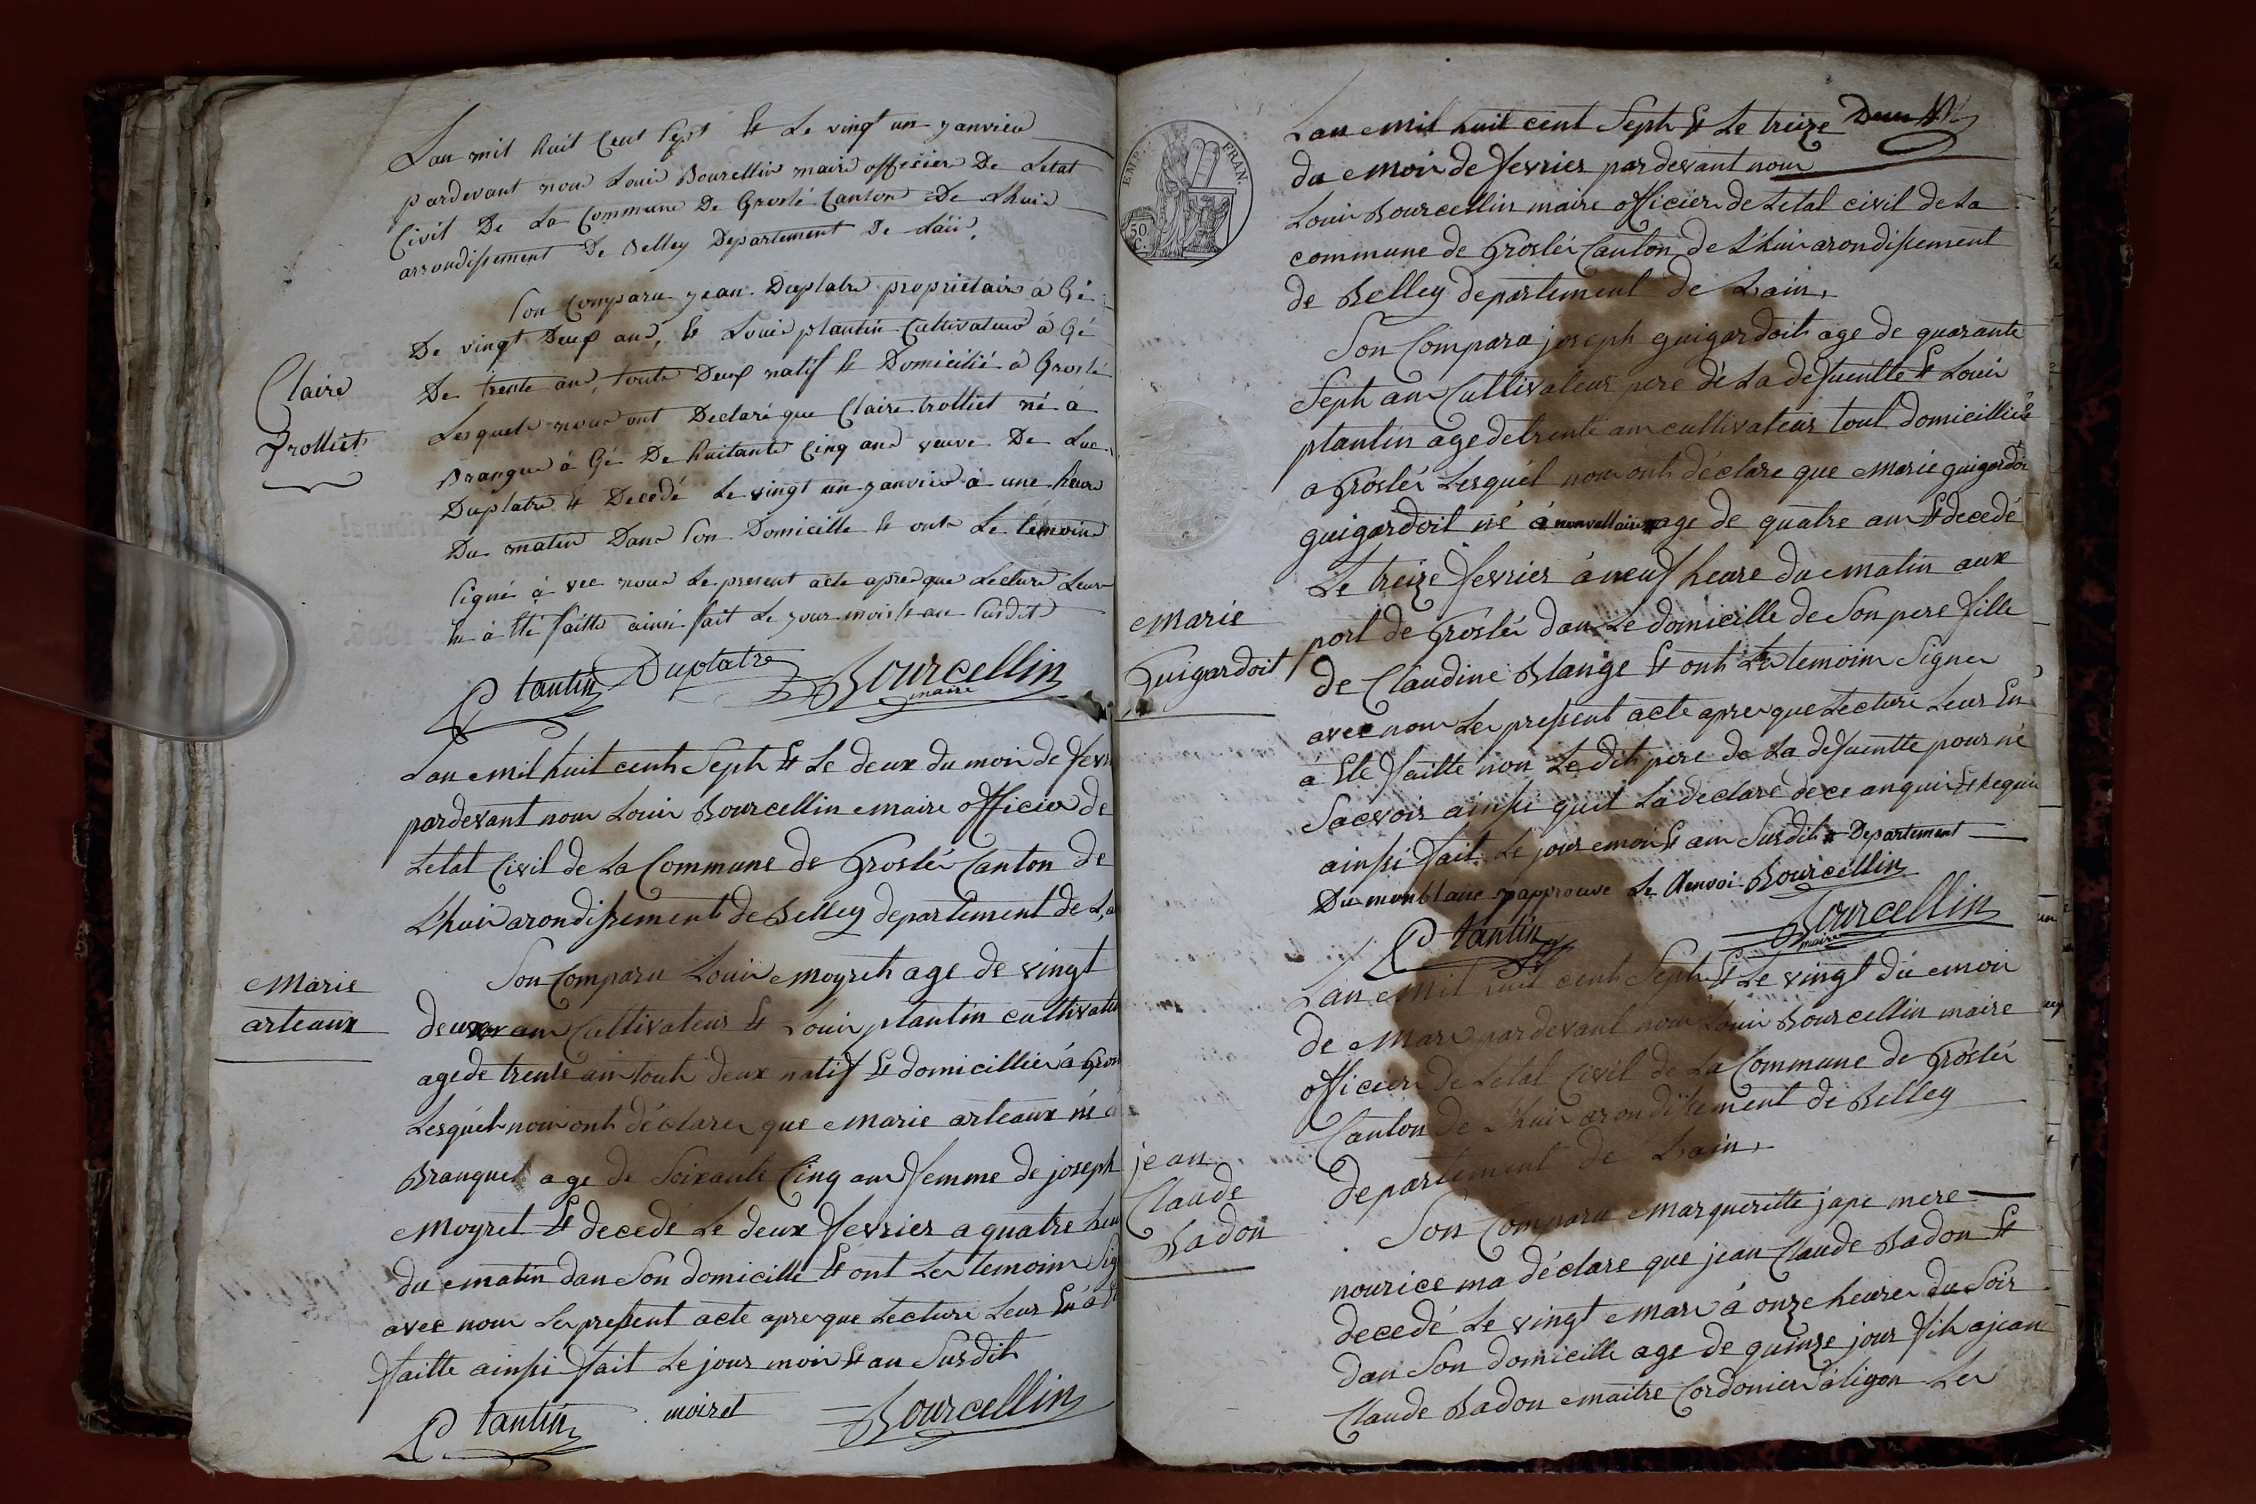 Lan mil huit Cent Sept & Le vingt un janvier
pardevant nous Louis Bourcellin maire officier De Letat
Civil De La Commune De Groslé Canton De Lhuis
arrondissement De Belley Departement De Lain.
Son Comparu jean Duplatre propriétaire à Gé
De vingt Deux ans, & Louis plantin Cultivateur à Gé
De trente ans, toute Deux natif & Domicilié à Groslé
Lesquels nous ont Declaré que Claire trolliet né à
Brangue à Gé De huitante Cinq ans veuve De Luc
Duplatre & Decedé Le vingt un janvier à une heure
Du matin Dans Son Domicille & onts Le temoins
Signé à vec nous Le present acte apres que Lecture Leur
En à Eté faitte ainsi fait Le jour mois & an Susdit
Claire
Trolliet
Plantin Duplatre Bourcellin
maire
Lan mil huit cent Seph & Le deux du mois de fevri
pardevant nous Louis Bourcellin maire officier de
Letat Civil de La Commune de Groslée Canton de
L'huis arondissement de Belley departement de La
Son Comparu Louis moyret age de vingt
deux ans Cultivateur & Louis plantin cultivateu
age de trente ans touts deux natif & domicillié à Gros
Lesquels nous ont déclare que marie arteaux né a
Branques age de Soixante Cinq ans femme de joseph
moyret & decedé Le deux fevrier a quatre heu
du matin dans Son domicille & ont Les temoins Sig
avec nous Le present acte apres que Lecture Leur En à E
faitte ainsi fait Le jour mois & an Susdit
marie
arteaux
Plantin moiret Bourcellin
Lan mil huit cent Seph & Le treize
du mois de fevrier pardevant nous
Louis Bourcellin maire officier de Letat civil de La
commune de Groslée Canton de L'huis arondissement
de Belley departement de Lain.
Son Compara joseph guigardoit age de quarante
Seph ans Cultivateur pere de La defuentte & Louis
plantin age de trente ans cultivateur tout domicillié
a Groslée Lesquél nous ont déclare que marie guigardoi
guigardoit né à age de quatre ans & decedé
Le treize fevrier à neuf heure du matin aux
port de Groslée dans Le domicille de Son pere fille
de Claudine Blange & ont Les temoins Signer
avec nous Le present acte apres que Lecture Leur En
à Ete faitte non Le dit pere de La defuentte pour né
Sacvoir ainsi quil La declaré de ce anquis & Requis
ainsi fait Le jour mois & ans Susdit Departement
Du monblanc japprouve Le Renvoi Bourcellin
marie
Guigardoit
Plantin Bourcellin
maire
Lan mil huit cent Seph & Le vingt du mois
de Mars pardevant nous Louis Bourcellin maire
officier de Letat Civil de La Commune de Groslée
Canton de L'huis arondissement de Belley
departement de Lain.
Son Comparu margueritte jape mere
nourice ma déclare que jean Claude Badon &
decedé Le vingt mars à onze heure du Soir
dans Son domicille age de quinze jour fih a jean
Claude Badon maitre Cordonier à ligon Les
jean
Claude
Badon
EMP. FRAN.
50
C.